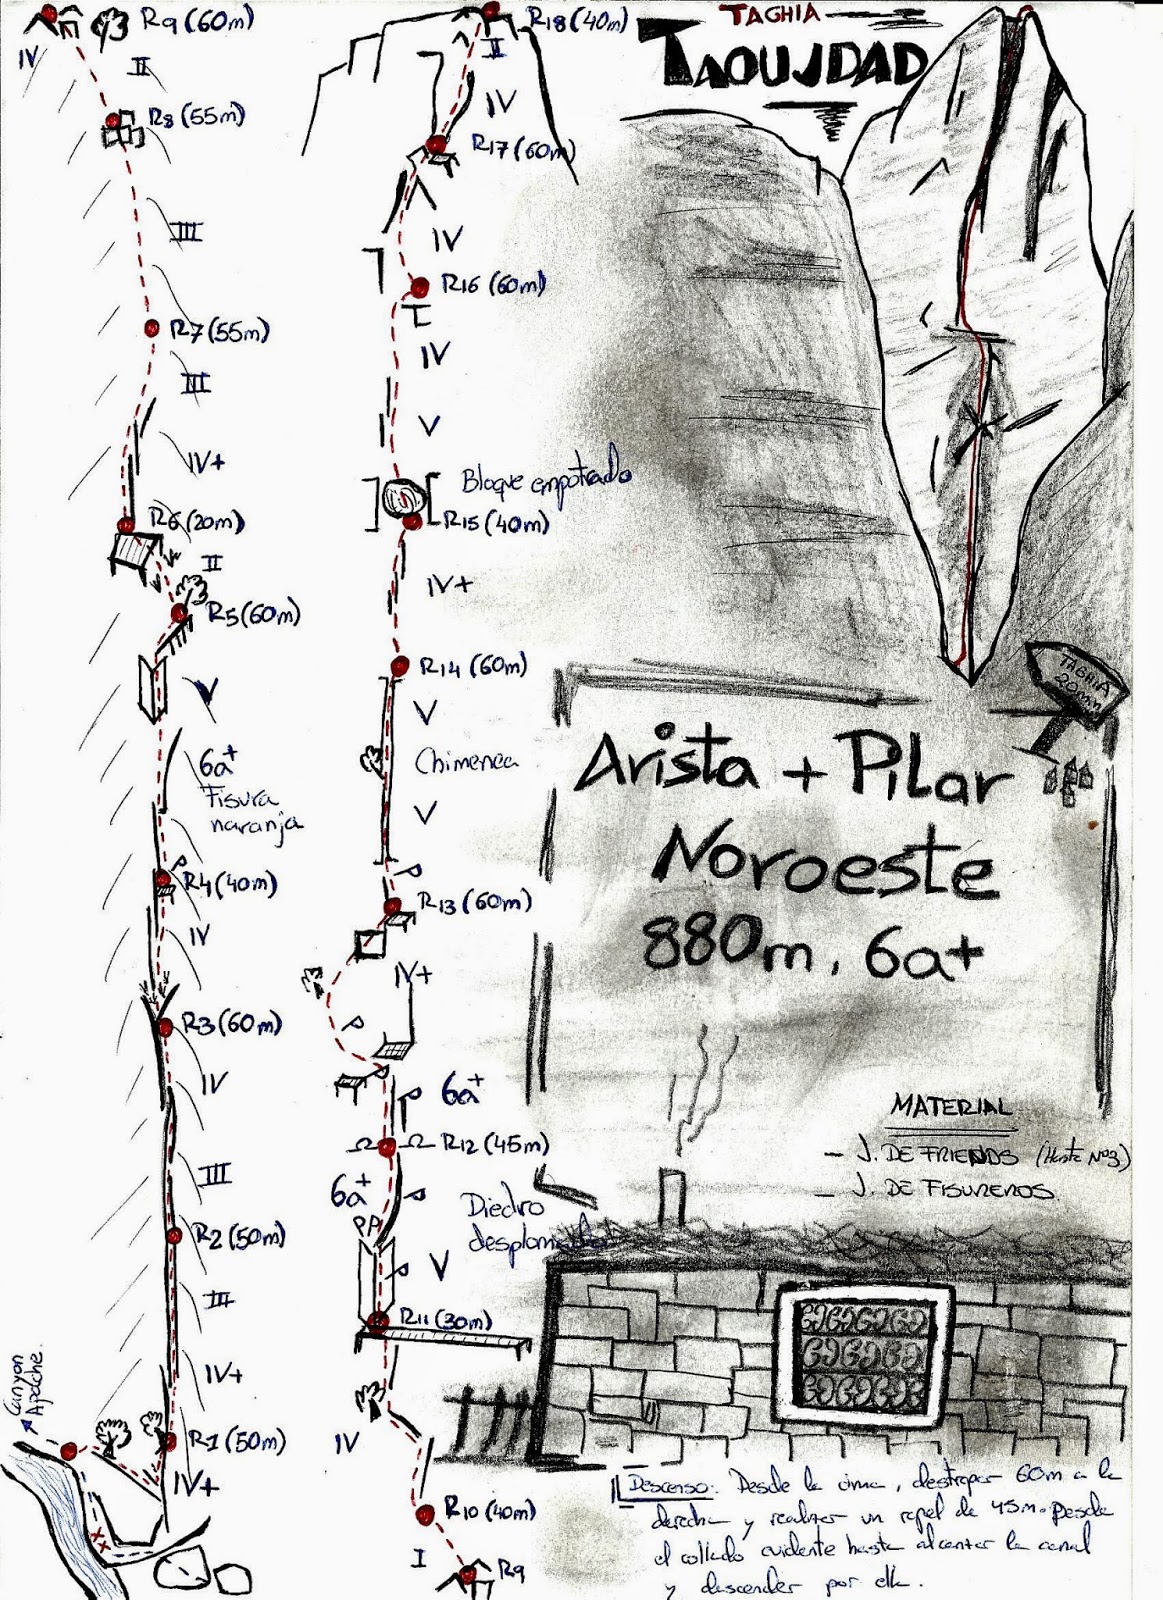 TAGHIA
TAOUJDAD
R9 (60m)
IV
II
R8 (55m)
III
R7 (55m)
III
IV+
R6 (20m)
II
R5 (60m)
V
6a+
Fisura
naranja
R4 (40m)
IV
R3 (60m)
IV
III
R2 (50m)
III
IV+
Canyon
Apache.
R1 (50m)
IV+
R18 (40m)
II
IV
R17 (60m)
IV
R16 (60m)
IV
V
Bloque empotrado
R15 (40m)
IV+
R14 (60m)
V
Chimenea
V
R13 (60m)
IV+
6a+
R12 (45m)
6a+
Diedro
desplomado
V
R11 (30m)
IV
R10 (40m)
I
R9
TAGHIA
20min
Arista + Pilar
Noroeste
880m, 6a+
MATERIAL
- J. DE FRIENDS (Hasta Nº3)
- J. DE FISUREROS
Descenso: Desde la cima, destrepar 60m a la
derecha y realizar un rapel de 45m. Desde
el collado evidente hasta alcanzar la canal
y descender por ella.